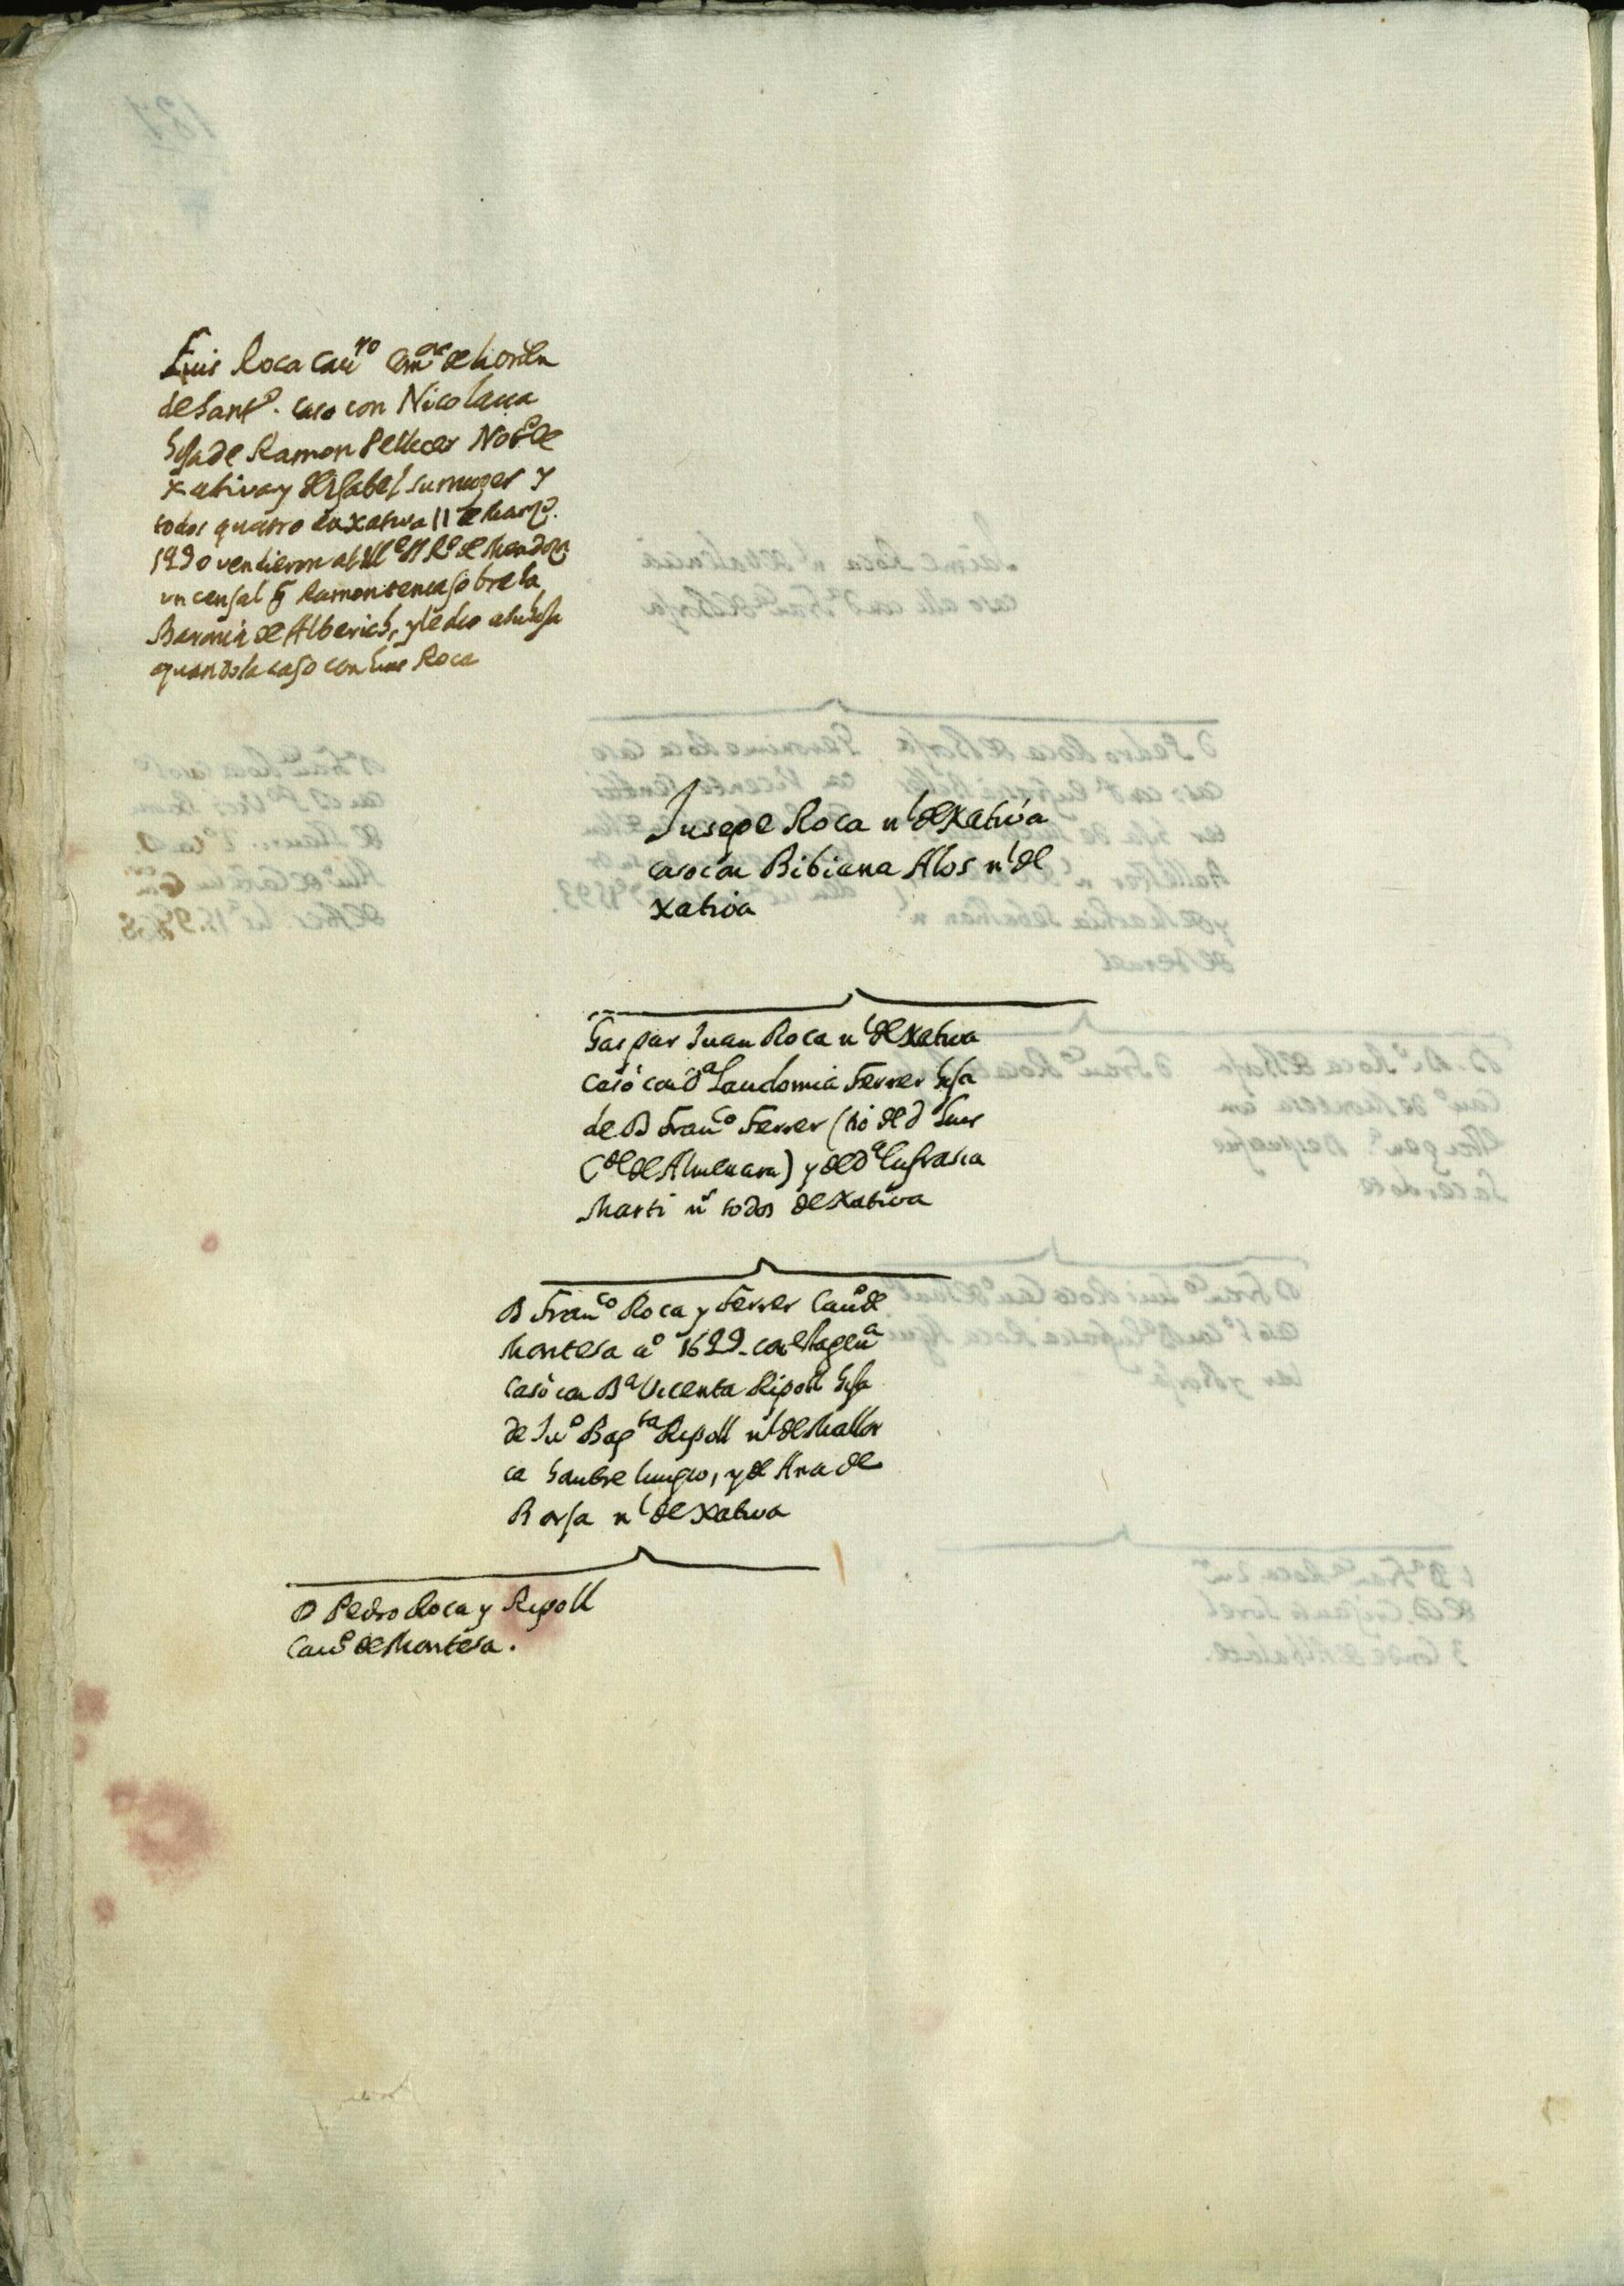 Luis Roca cau^ro com^or de la orden
de Sant^o. caso con Nicolaua
hija de Ramon Pellicer Not^o de
Xativa y de Isabel su muger y
todos quatro en Xativa 11 de Março.
1490 vendieron al Ill^e de Mendoça
un censal q̃ Ramon tenia sobre la
Baronia de Alberich, y le dio a su hija
quando la caso con Luis Roca
Jusepe Roca n^l de Xativa
caso con Bibiana Alos n^l de
Xativa
Gaspar Juan Roca n^l de Xativa
casò con d^a Laudomia Ferrer hija
de D Fran^co Ferrer (tio de d Luis
C^de de Almenara) y de d^a Eufrasia
Marti n^s todos de Xativa
D Fran^co Roca y Ferrer Cau^o de
Montesa a^o 1629. con
casò con D^a Vicenta Ripoll hija
de Ju^o Bap^ta Ripoll n^l de Mallor
ca hombre luengo, y de Ana de
Borja n^l de Xativa
D Pedro Roca y Ripoll
Cau^o de Montesa.